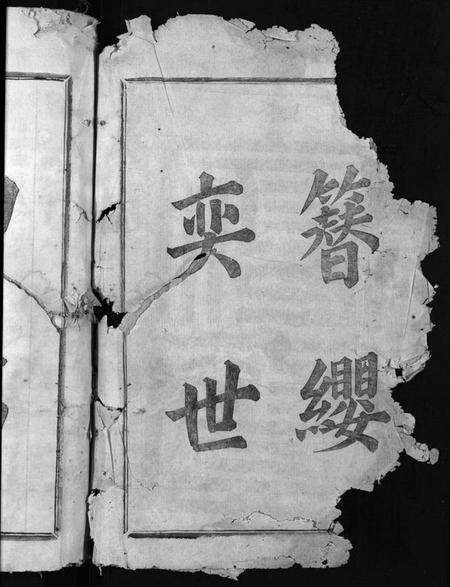 簪纓
奕世